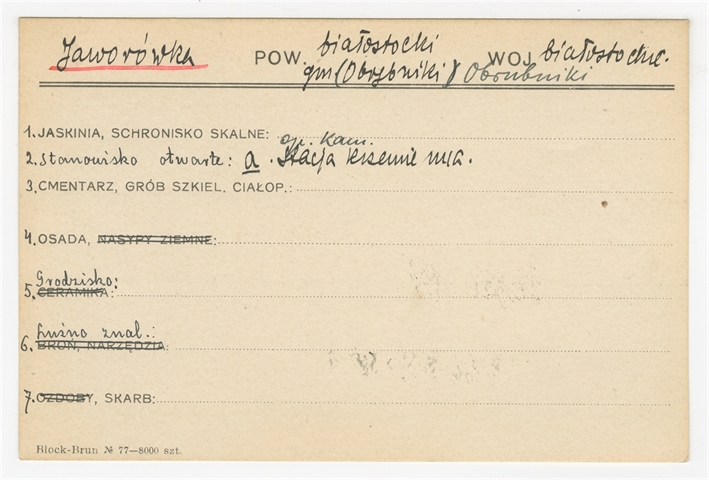 Jaworówka POW. białostocki WOJ. białostockie.
gm (Obrębniki) Obrubniki
1. JASKINIA, SCHRONISKO SKALNE: ep. kam.
2. Stanowisko otwarte: a. Stacja krzemienna.
3. CMENTARZ, GRÓB SZKIEL. CIAŁOP.:
4. OSADA, NASYPY ZIEMNE:
Grodzisko:
5. CERAMIKA:
Luźno znal.:
6. BROŃ, NARZĘDZIA:
7. OZDOBY, SKARB:
Block-Brun № 77—8000 szt.